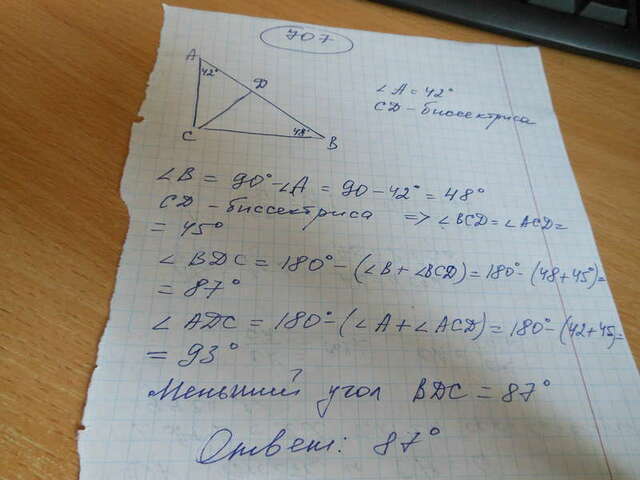 707
A
42°
D
C
48°
B
∠A = 42°
CD - биссектриса
∠B = 90° - ∠A = 90 - 42° = 48°
CD - биссектриса => ∠BCD = ∠ACD =
= 45°
∠BDC = 180° - (∠B + ∠BCD) = 180° - (48 + 45°) =
= 87°
∠ADC = 180° - (∠A + ∠ACD) = 180° - (42 + 45) =
= 93°
Меньший угол BDC = 87°
Ответ: 87°